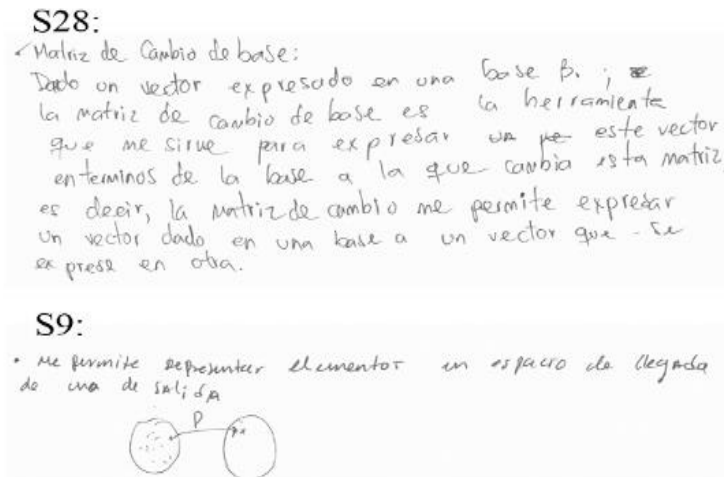 S28:
Matriz de Cambio de base:
Dado un vector expresado en una base B. ;
la matriz de cambio de base es la herramienta
que me sirve para expresar este vector
en terminos de la base a la que cambia esta matriz,
es decir, la matriz de cambio me permite expresar
un vector dado en una base a un vector que se
exprese en otra.
S9:
• Me permite representar elementos en espacio de llegada
de una de salida
P